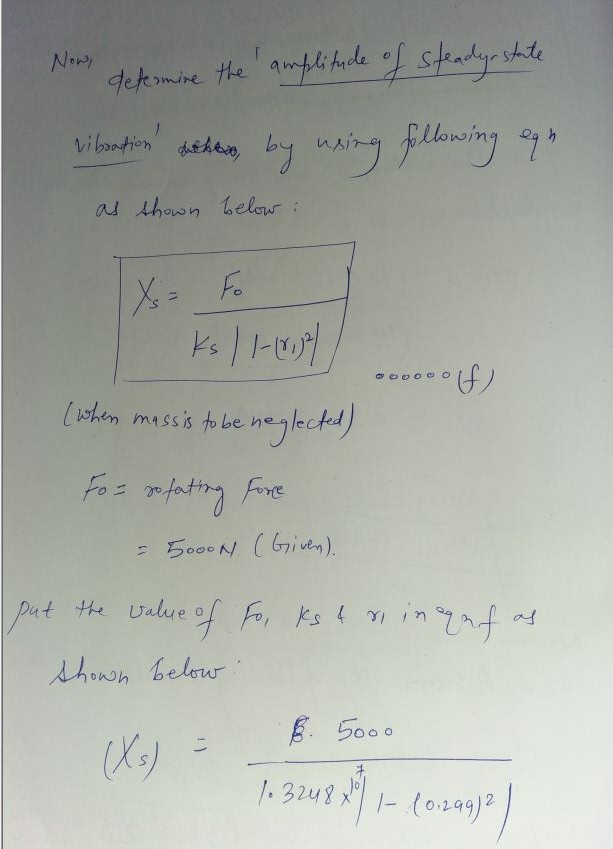 Now,
determine the 'amplitude of steady-state
vibration' by using following eqn
as shown below :
Xs = F0 / Ks |1-(r1)²|
......(f)
(when mass is to be neglected)
F0 = rotating Force
= 5000N (Given).
put the value of F0, Ks & r1 in eqn f as
shown below :
(Xs) = 5000 / 1.3248 x 10⁷ | 1 - (0.299)² |